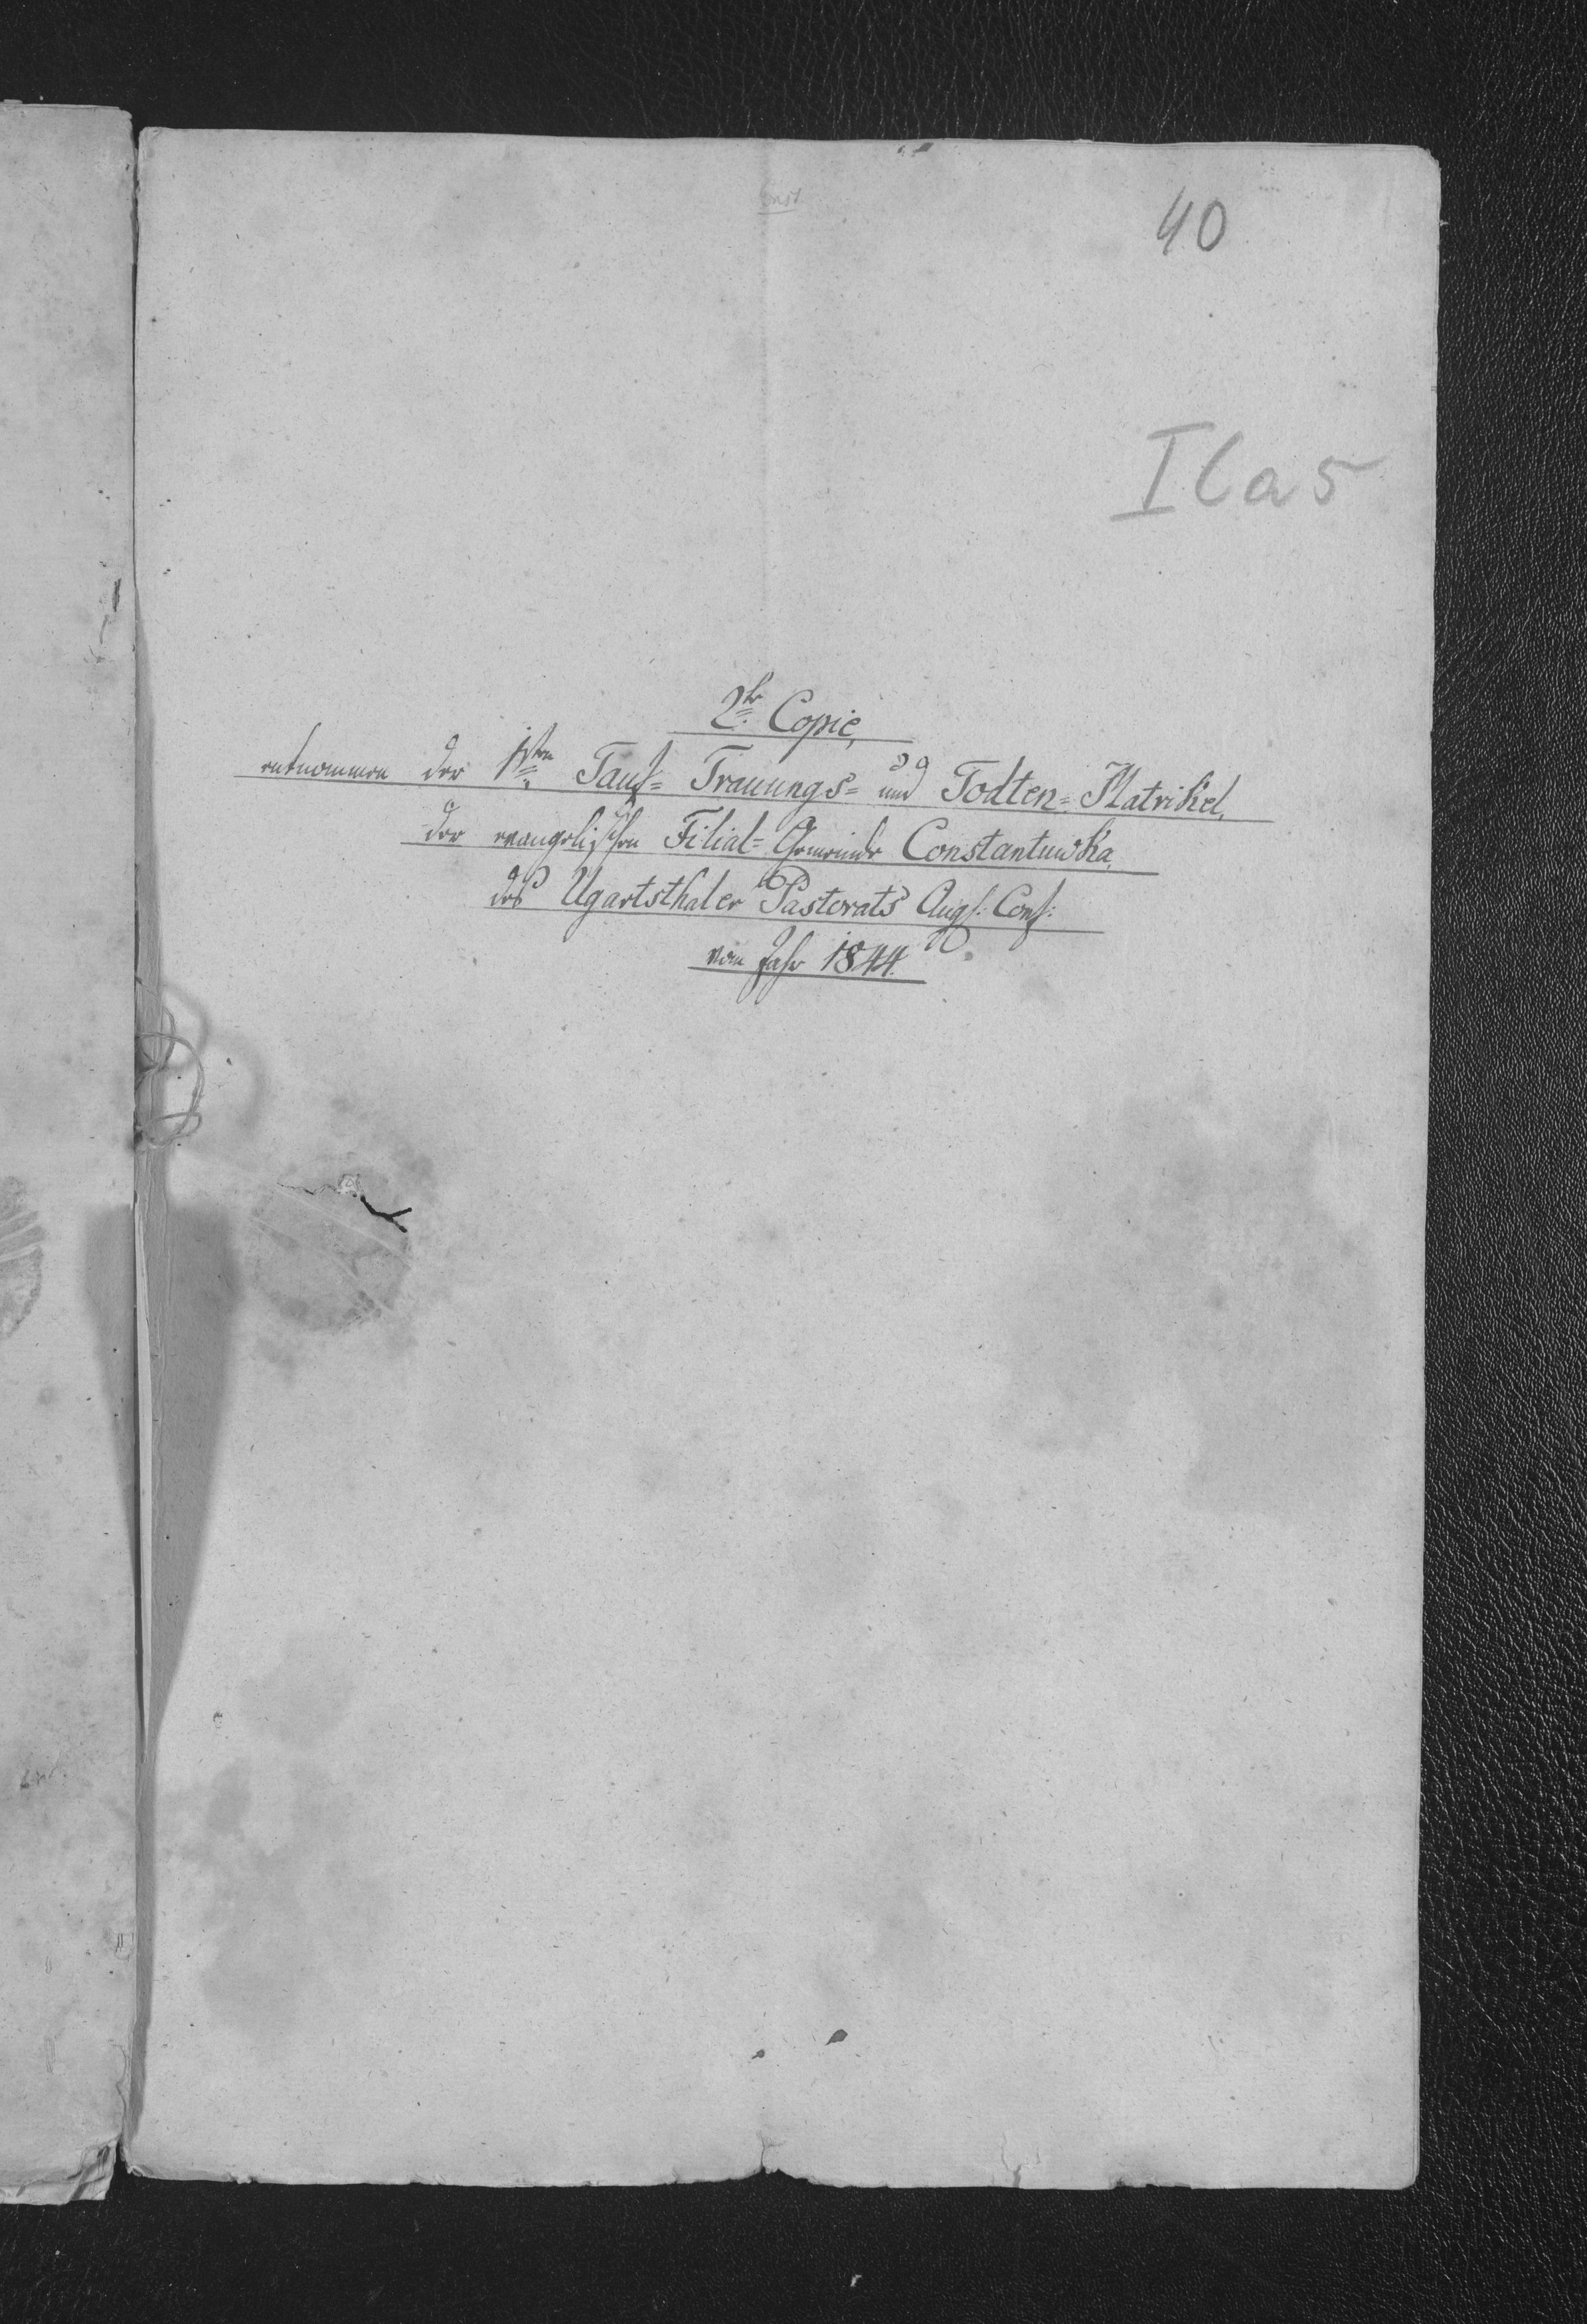 40
I C a 5
2te Copie,
entnommen der 1sten Tauf= Trauungs= und Todten= Matrikel,
der evangelischen Filial= Gemeinde Constantuwka,
des Ugartsthaler Pastorats Augs: Conf:
vom Jahr 1844.